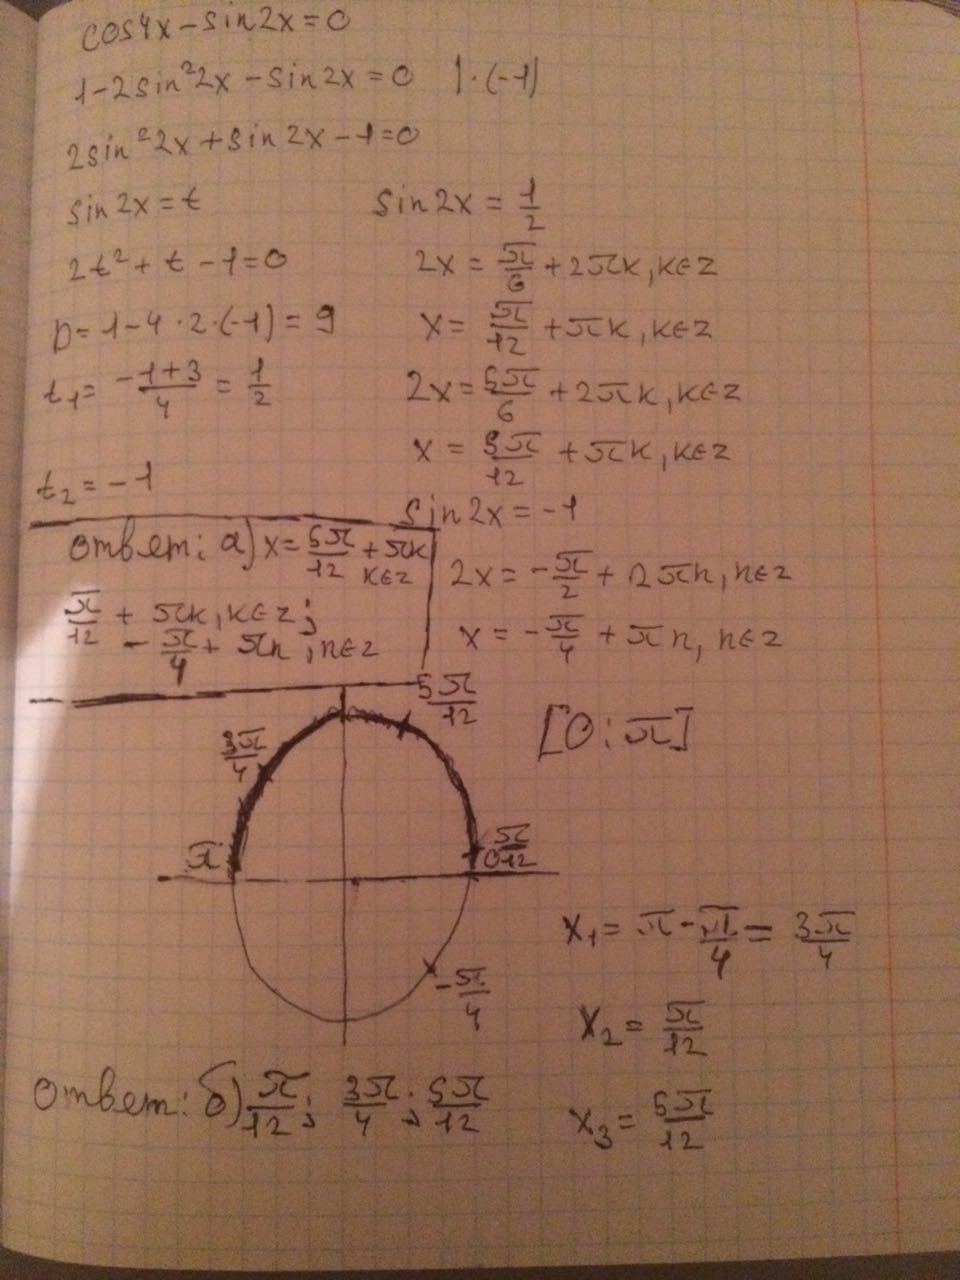 cos4x - sin2x = 0
1 - 2sin²2x - sin2x = 0 | · (-1)
2sin²2x + sin2x - 1 = 0
sin2x = t
2t² + t - 1 = 0
D = 1 - 4 · 2 · (-1) = 9
t₁ = (-1+3)/4 = 1/2
t₂ = -1
sin2x = 1/2
2x = π/6 + 2πk, k∈z
x = π/12 + πk, k∈z
2x = 5π/6 + 2πk, k∈z
x = 5π/12 + πk, k∈z
sin2x = -1
2x = -π/2 + 2πn, n∈z
x = -π/4 + πn, n∈z
ответ: а) x = 5π/12 + πk
k∈z
π/12 + πk, k∈z;
-π/4 + πn, n∈z
5π/12
3π/4
[0; π]
π
0 π/12
-π/4
x₁ = π - π/4 = 3π/4
x₂ = π/12
x₃ = 5π/12
ответ: б) π/12; 3π/4; 5π/12